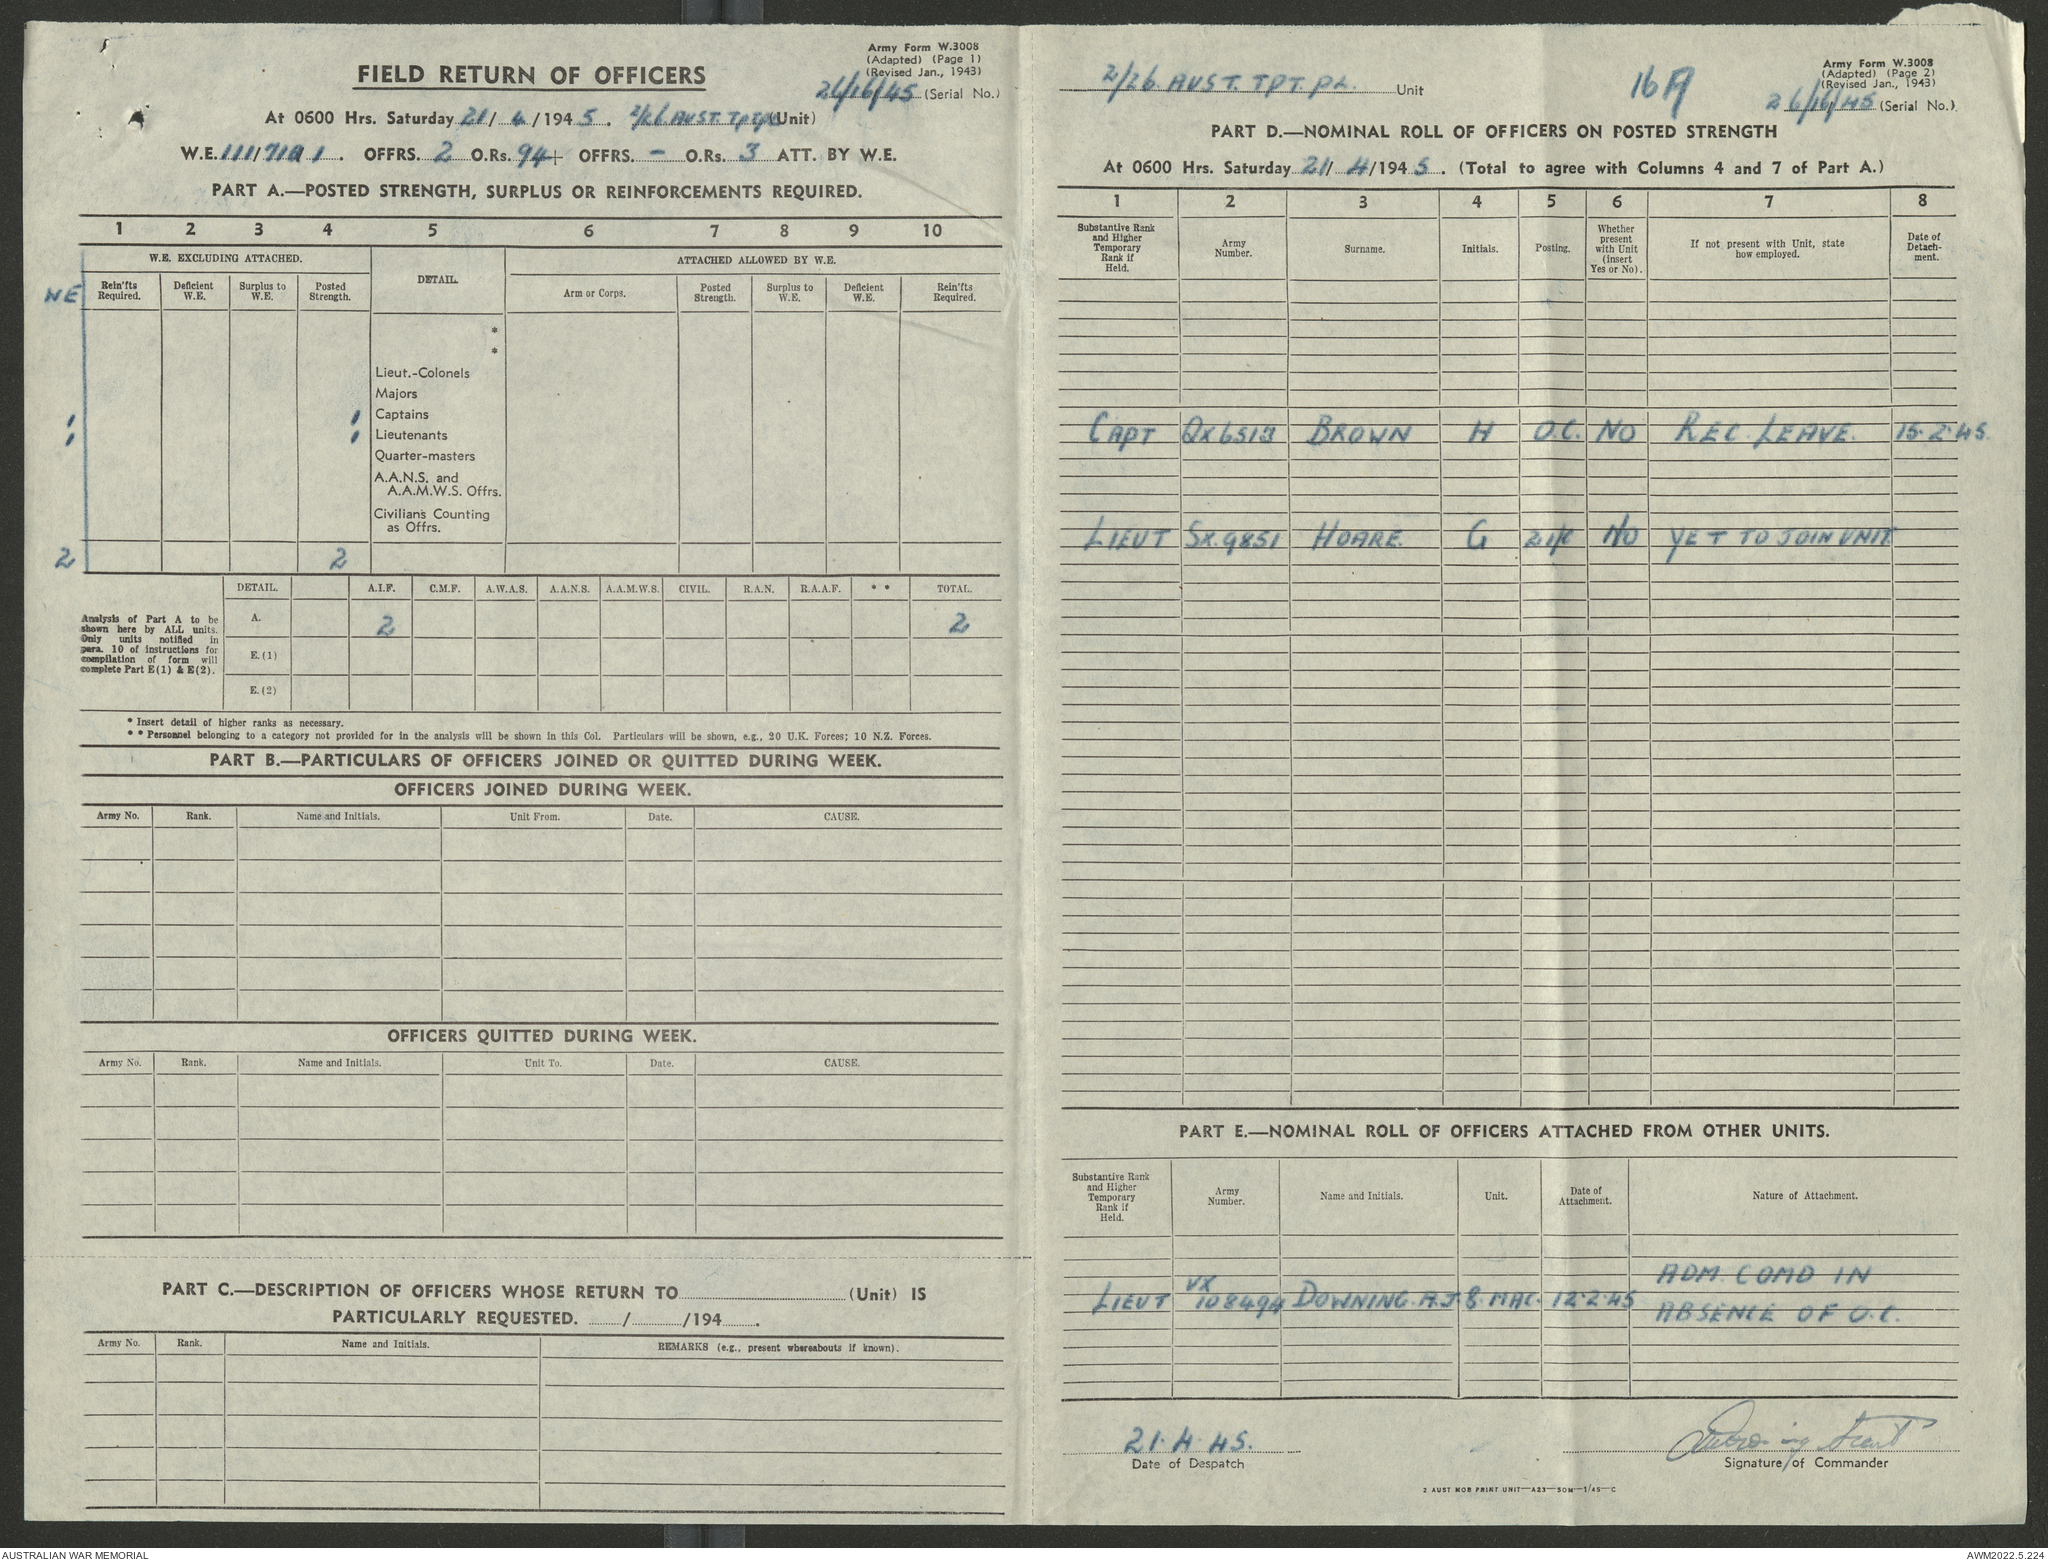 Army Form W.3008
(Adapted) (Page 1)
(Revised Jan., 1943)
FIELD RETURN OF OFFICERS
26/16/45 (Serial No.)
At 0600 Hrs. Saturday 21/4/1945. 2/26 AUST. TPT. PL (Unit)
W.E. 111/719 1. OFFRS. 2 O.Rs. 94 + OFFRS. - O.Rs. 3 ATT. BY W.E.
PART A.—POSTED STRENGTH, SURPLUS OR REINFORCEMENTS REQUIRED.
1 2 3 4 5 6 7 8 9 10
W.E. EXCLUDING ATTACHED. DETAIL. ATTACHED ALLOWED BY W.E.
WE Rein'fts Required. Deficient W.E. Surplus to W.E. Posted Strength. Arm or Corps. Posted Strength. Surplus to W.E. Deficient W.E. Rein'fts Required.
*
*
Lieut.-Colonels
Majors
1 1 Captains
1 1 Lieutenants
Quarter-masters
A.A.N.S. and
A.A.M.W.S. Offrs.
Civilians Counting
as Offrs.
2 2
DETAIL. A.I.F. C.M.F. A.W.A.S. A.A.N.S. A.A.M.W.S. CIVIL. R.A.N. R.A.A.F. * * TOTAL.
Analysis of Part A to be
shown here by ALL units.
Only units notified in
para. 10 of instructions for
compilation of form will
complete Part E(1) & E(2).
A. 2 2
E.(1)
E.(2)
* Insert detail of higher ranks as necessary.
* * Personnel belonging to a category not provided for in the analysis will be shown in this Col. Particulars will be shown, e.g., 20 U.K. Forces; 10 N.Z. Forces.
PART B.—PARTICULARS OF OFFICERS JOINED OR QUITTED DURING WEEK.
OFFICERS JOINED DURING WEEK.
Army No. Rank. Name and Initials. Unit From. Date. CAUSE.
OFFICERS QUITTED DURING WEEK.
Army No. Rank. Name and Initials. Unit To. Date. CAUSE.
PART C.—DESCRIPTION OF OFFICERS WHOSE RETURN TO (Unit) IS
PARTICULARLY REQUESTED. / /194 .
Army No. Rank. Name and Initials. REMARKS (e.g., present whereabouts if known).
Army Form W.3008
(Adapted) (Page 2)
(Revised Jan., 1943)
2/26 AUST. TPT. PL. Unit 16A 26/16/45 (Serial No.)
PART D.—NOMINAL ROLL OF OFFICERS ON POSTED STRENGTH
At 0600 Hrs. Saturday 21/4/1945. (Total to agree with Columns 4 and 7 of Part A.)
1 2 3 4 5 6 7 8
Substantive Rank and Higher Temporary Rank if Held. Army Number. Surname. Initials. Posting. Whether present with Unit (insert Yes or No). If not present with Unit, state how employed. Date of Detach-ment.
CAPT QX6513 BROWN H O.C. NO REC. LEAVE. 15.2.45.
LIEUT SX.9851 HOARE. G 2 i/c NO YET TO JOIN UNIT
PART E.—NOMINAL ROLL OF OFFICERS ATTACHED FROM OTHER UNITS.
Substantive Rank and Higher Temporary Rank if Held. Army Number. Name and Initials. Unit. Date of Attachment. Nature of Attachment.
LIEUT VX 108494 DOWNING. A.J. 8. MAC. 12.2.45 ADM. COMD IN
ABSENCE OF O.C.
21.4.45.
Date of Despatch
Downing Lieut
Signature of Commander
2 AUST MOB PRINT UNIT—A23—50M—1/45—C
AUSTRALIAN WAR MEMORIAL AWM2022.5.224